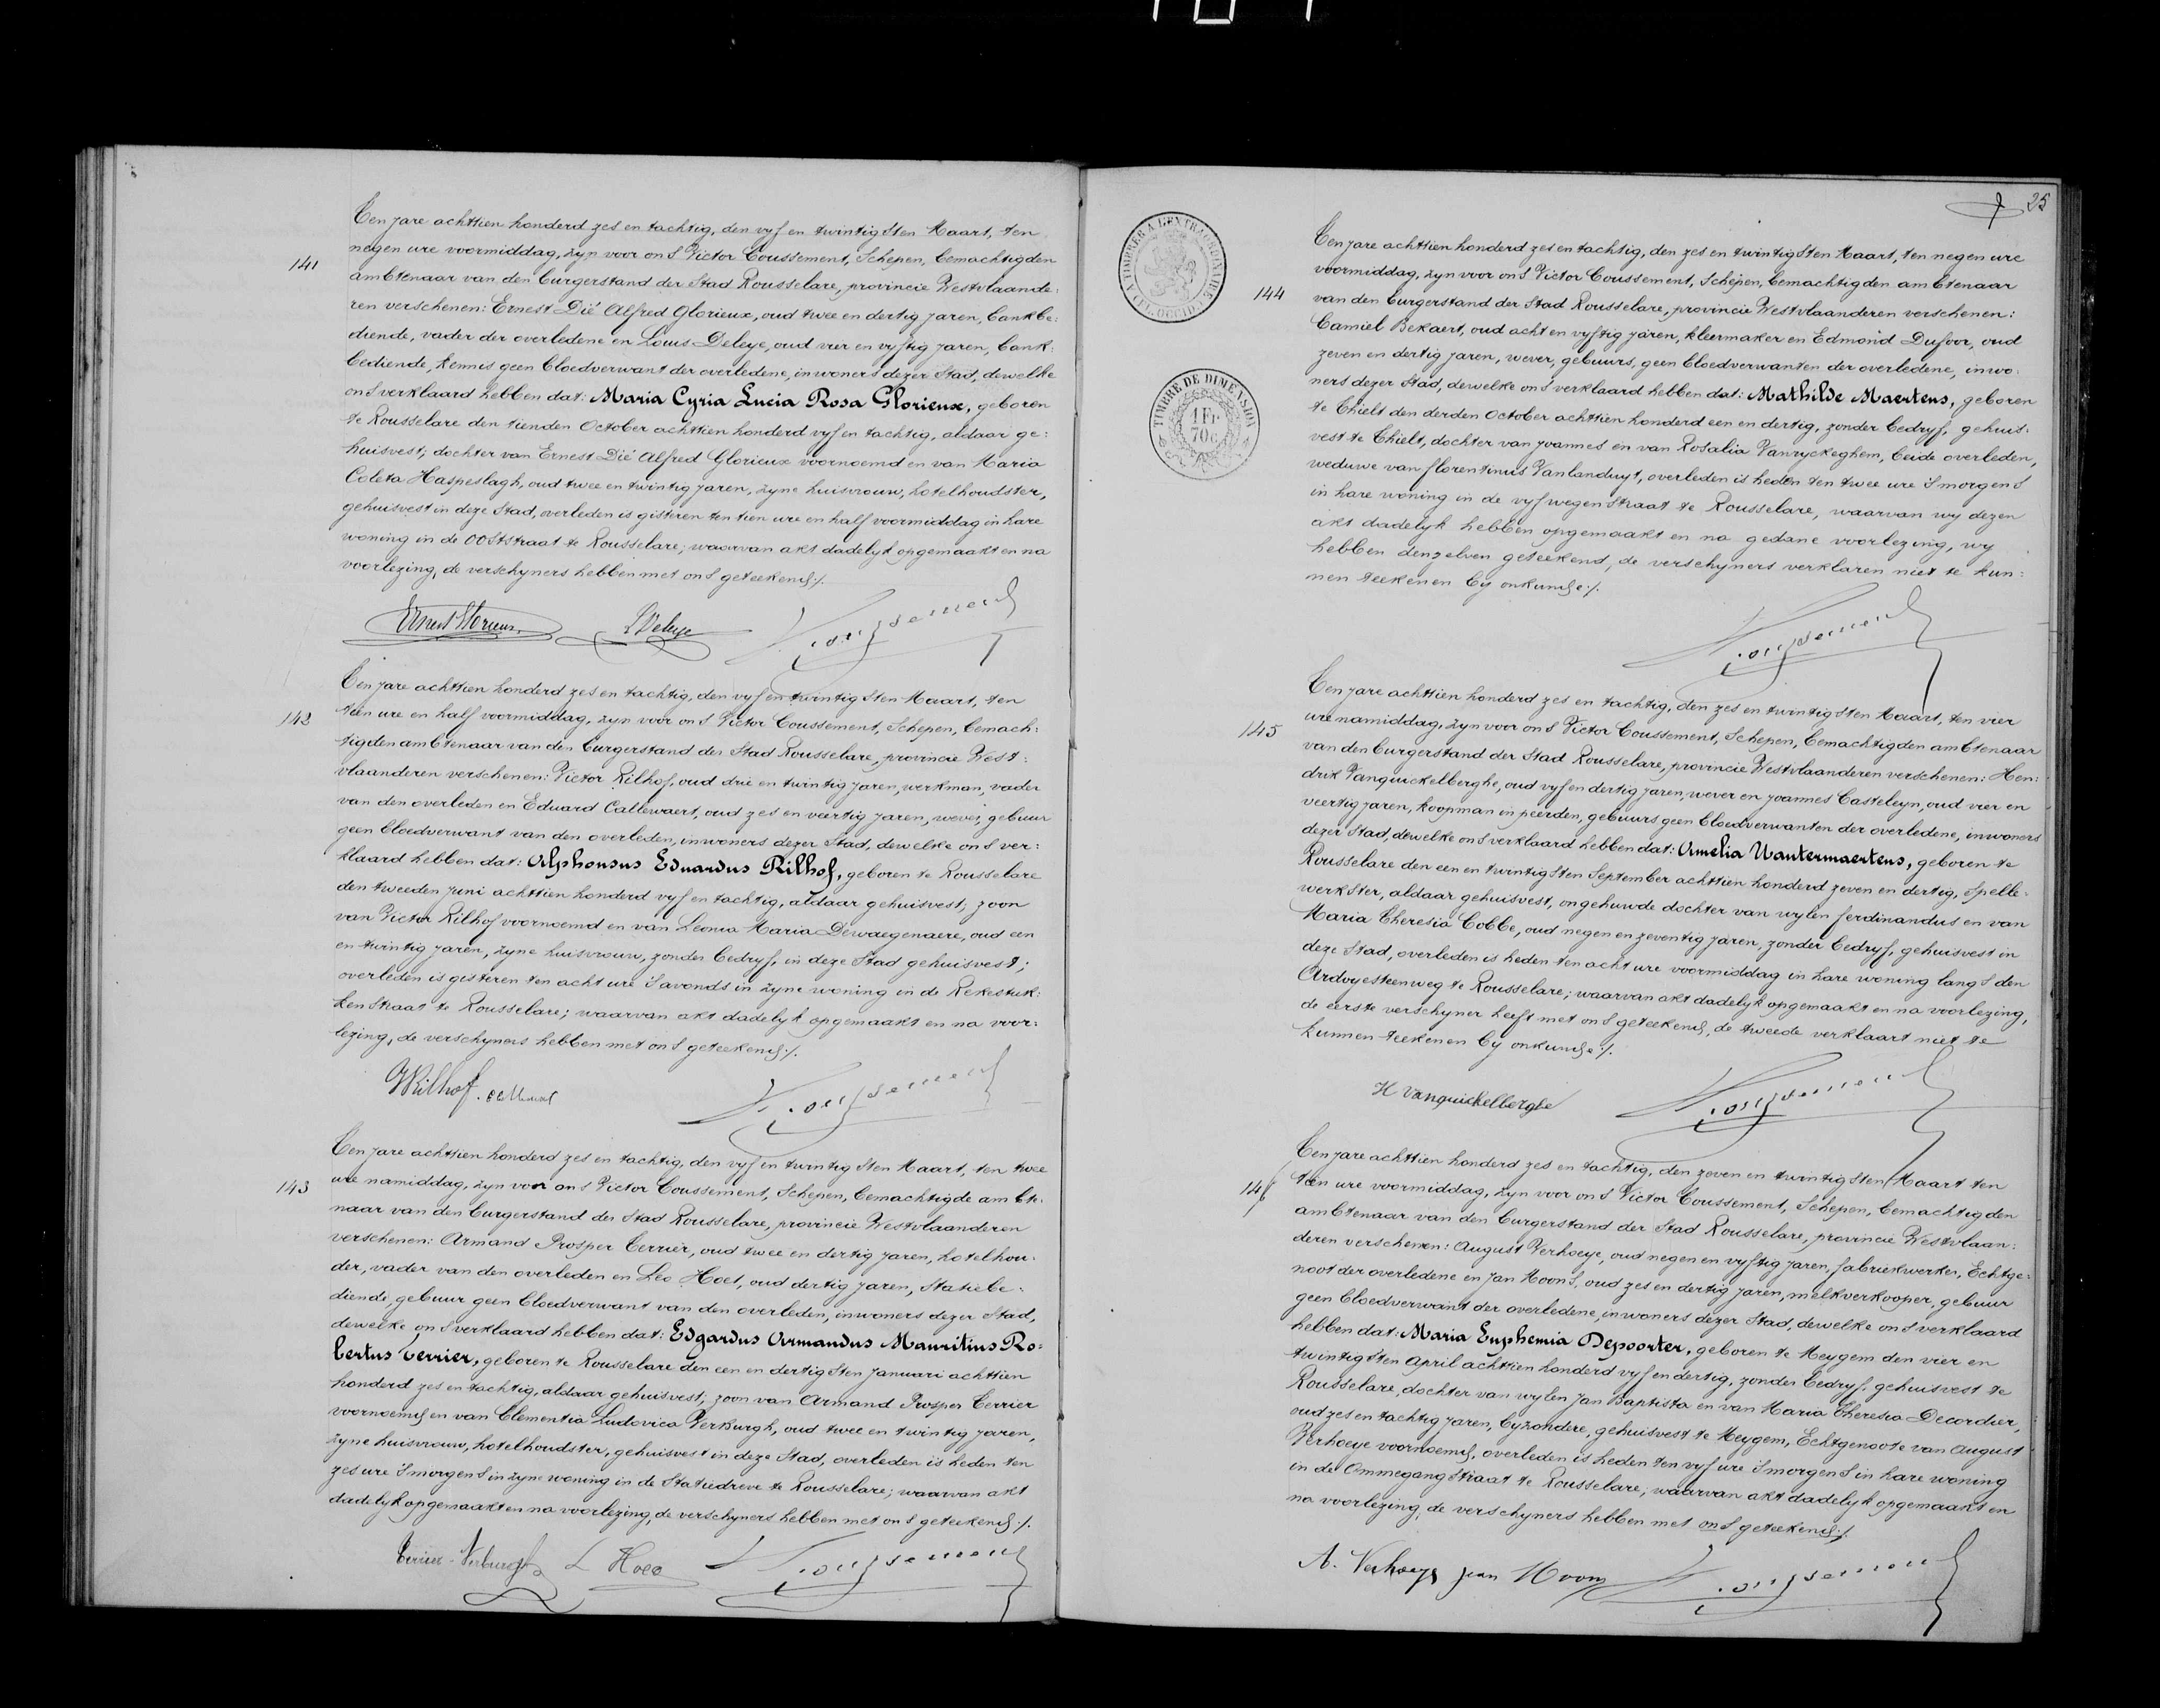 141
Ten jare achttien honderd zes en tachtig, den vyf en twintigsten Maart, ten
negen ure voormiddag, zyn voor ons Victor Coussement, Schepen, bemachtigden
ambtenaar van den burgerstand der Stad Rousselare, provincie Westvlaande:
ren verschenen: Ernest Dié Alfred Glorieux, oud twee en dertig jaren, bankbe:
diende, vader der overledene en Louis Deleye, oud vier en vyftig jaren, bank:
bediende, kennis geen bloedverwant der overledene, inwoners dezer Stad, dewelke
ons verklaard hebben dat: Maria Cyria Lucia Rosa Glorieux, geboren
te Rousselare den tienden October achttien honderd vyf en tachtig, aldaar ge:
huisvest; dochter van Ernest Dié Alfred Glorieux voornoemd en van Maria
Coleta Haspeslagh, oud twee en twintig jaren, zyne huisvrouw, hotelhoudster,
gehuisvest in deze Stad, overleden is gisteren ten tien ure en half voormiddag in hare
woning in de Ooststraat te Rousselare; waarvan akt dadelyk opgemaakt en na
voorlezing, de verschyners hebben met ons geteekend ./.
Ernest Glorieux L Deleye V. Coussement
142
Ten jare achttien honderd zes en tachtig, den vyf en twintigsten Maart, ten
tien ure en half voormiddag, zyn voor ons Victor Coussement, Schepen, bemach:
tigden ambtenaar van den burgerstand der Stad Rousselare, provincie West:
vlaanderen verschenen: Victor Rilhof, oud drie en twintig jaren, werkman, vader
van den overleden en Eduard Callewaert, oud zes en veertig jaren, wever, gebuur
geen bloedverwant van den overleden, inwoners dezer Stad, dewelke ons ver:
klaard hebben dat: Alphonsus Eduardus Rilhof, geboren te Rousselare
den tweeden Juni achttien honderd vyf en tachtig, aldaar gehuisvest, zoon
van Victor Rilhof voornoemd en van Leonia Maria Dewaegenaere, oud een
en twintig jaren, zyne huisvrouw, zonder bedryf, in deze Stad gehuisvest;
overleden is gisteren ten acht ure s'avonds in zyne woning in de
kenstraat te Rousselare; waarvan akt dadelyk opgemaakt en na voor:
lezing, de verschyners hebben met ons geteekend ./.
VRilhof. V. Coussement
143
Ten jare achttien honderd zes en tachtig, den vyf en twintigsten Maart, ten twee
ure namiddag, zyn voor ons Victor Coussement, Schepen, bemachtigde ambte:
naar van den burgerstand der Stad Rousselare, provincie Westvlaanderen
verschenen: Armand Prosper Terrier, oud twee en dertig jaren, hotelhou:
der, vader van den overleden en Leo Hoet, oud dertig jaren, Statiebe:
diende, gebuur geen bloedverwant van den overleden, inwoners dezer Stad,
dewelke ons verklaard hebben dat: Edgardus Armandus Mauritius Ro:
bertus Terrier, geboren te Rousselare den een en dertigsten Januari achttien
honderd zes en tachtig, aldaar gehuisvest; zoon van Armand Prosper Terrier
voornoemd en van Clementia Ludovica Verburgh, oud twee en twintig jaren,
zyne huisvrouw, hotelhoudster, gehuisvest in deze Stad, overleden is heden ten
zes ure s'morgens in zyne woning in de Statiedreve te Rousselare; waarvan akt
dadelyk opgemaakt en na voorlezing, de verschyners hebben met ons geteekend ./.
Terrier-Verburgh L Hoet V. Coussement
25
A TIMBRER A L'EXTRAORDINAIRE
TIMBRE DE DIMENSION
1 Fr.
70 c.
144
Ten jare achttien honderd zes en tachtig, den zes en twintigsten Maart, ten negen ure
voormiddag, zyn voor ons Victor Coussement, Schepen, bemachtigden ambtenaar
van den burgerstand der Stad Rousselare, provincie Westvlaanderen verschenen:
Camiel Bekaert, oud acht en vyftig jaren, kleermaker en Edmond Dufoor, oud
zeven en dertig jaren, wever, gebuurs, geen bloedverwanten der overledene, inwo:
ners dezer Stad, dewelke ons verklaard hebben dat: Mathilde Maertens, geboren
te Thielt den derden October achttien honderd een en dertig, zonder bedryf, gehuis:
vest te Thielt, dochter van Joannes en van Rosalia Vanryckeghem, beide overleden,
weduwe van florentinus Vanlanduyt, overleden is heden ten twee ure s'morgens
in hare woning in de vyfwegenstraat te Rousselare, waarvan wy dezen
akt dadelyk hebben opgemaakt en na gedane voorlezing, wy
hebben denzelven geteekend, de verschyners verklaren niet te kun:
nen teekenen by onkunde ./.
V. Coussement
145
Ten jare achttien honderd zes en tachtig, den zes en twintigsten Maart, ten vier
ure namiddag, zyn voor ons Victor Coussement, Schepen, bemachtigden ambtenaar
van den burgerstand der Stad Rousselare, provincie Westvlaanderen verschenen: Hen:
drik Vanquickelberghe, oud vyf en dertig jaren, wever en Joannes Casteleyn, oud vier en
veertig jaren, koopman in peerden, gebuurs geen bloedverwanten der overledene, inwoners
dezer Stad, dewelke ons verklaard hebben dat: Amelia Wautermaertens, geboren te
Rousselare den een en twintigsten September achttien honderd zeven en dertig, spelle:
werkster, aldaar gehuisvest, ongehuwde dochter van wylen ferdinandus en van
Maria Theresia Cobbe, oud negen en zeventig jaren, zonder bedryf, gehuisvest in
deze Stad, overleden is heden ten acht ure voormiddag in hare woning langs den
Ardoyesteenweg te Rousselare; waarvan akt dadelyk opgemaakt en na voorlezing,
de eerste verschyner heeft met ons geteekend, de tweede verklaart niet te
kunnen teekenen by onkunde ./.
H Vanquickelberghe V. Coussement
146
Ten jare achttien honderd zes en tachtig, den zeven en twintigsten Maart ten
tien ure voormiddag, zyn voor ons Victor Coussement, Schepen, bemachtigden
ambtenaar van den burgerstand der Stad Rousselare, provincie Westvlaan:
deren verschenen: August Verhoeye, oud negen en vyftig jaren, fabriekwerker, Echtge:
noot der overledene en Jan Moons, oud zes en dertig jaren, melkverkooper, gebuur
geen bloedverwant der overledene, inwoners dezer Stad, dewelke ons verklaard
hebben dat: Maria Euphemia Depoorter, geboren te Meygem den vier en
twintigsten April achttien honderd vyf en dertig, zonder bedryf, gehuisvest te
Rousselare, dochter van wylen Jan Baptista en van Maria Theresia Decordier,
oud zes en tachtig jaren, byzondere, gehuisvest te Meygem, Echtgenoote van August
Verhoeye voornoemd, overleden is heden ten vyf ure s'morgens in hare woning
in de Ommegangstraat te Rousselare; waarvan akt dadelyk opgemaakt en
na voorlezing, de verschyners hebben met ons geteekend ./.
A. Verhoeye jan Moons V. Coussement